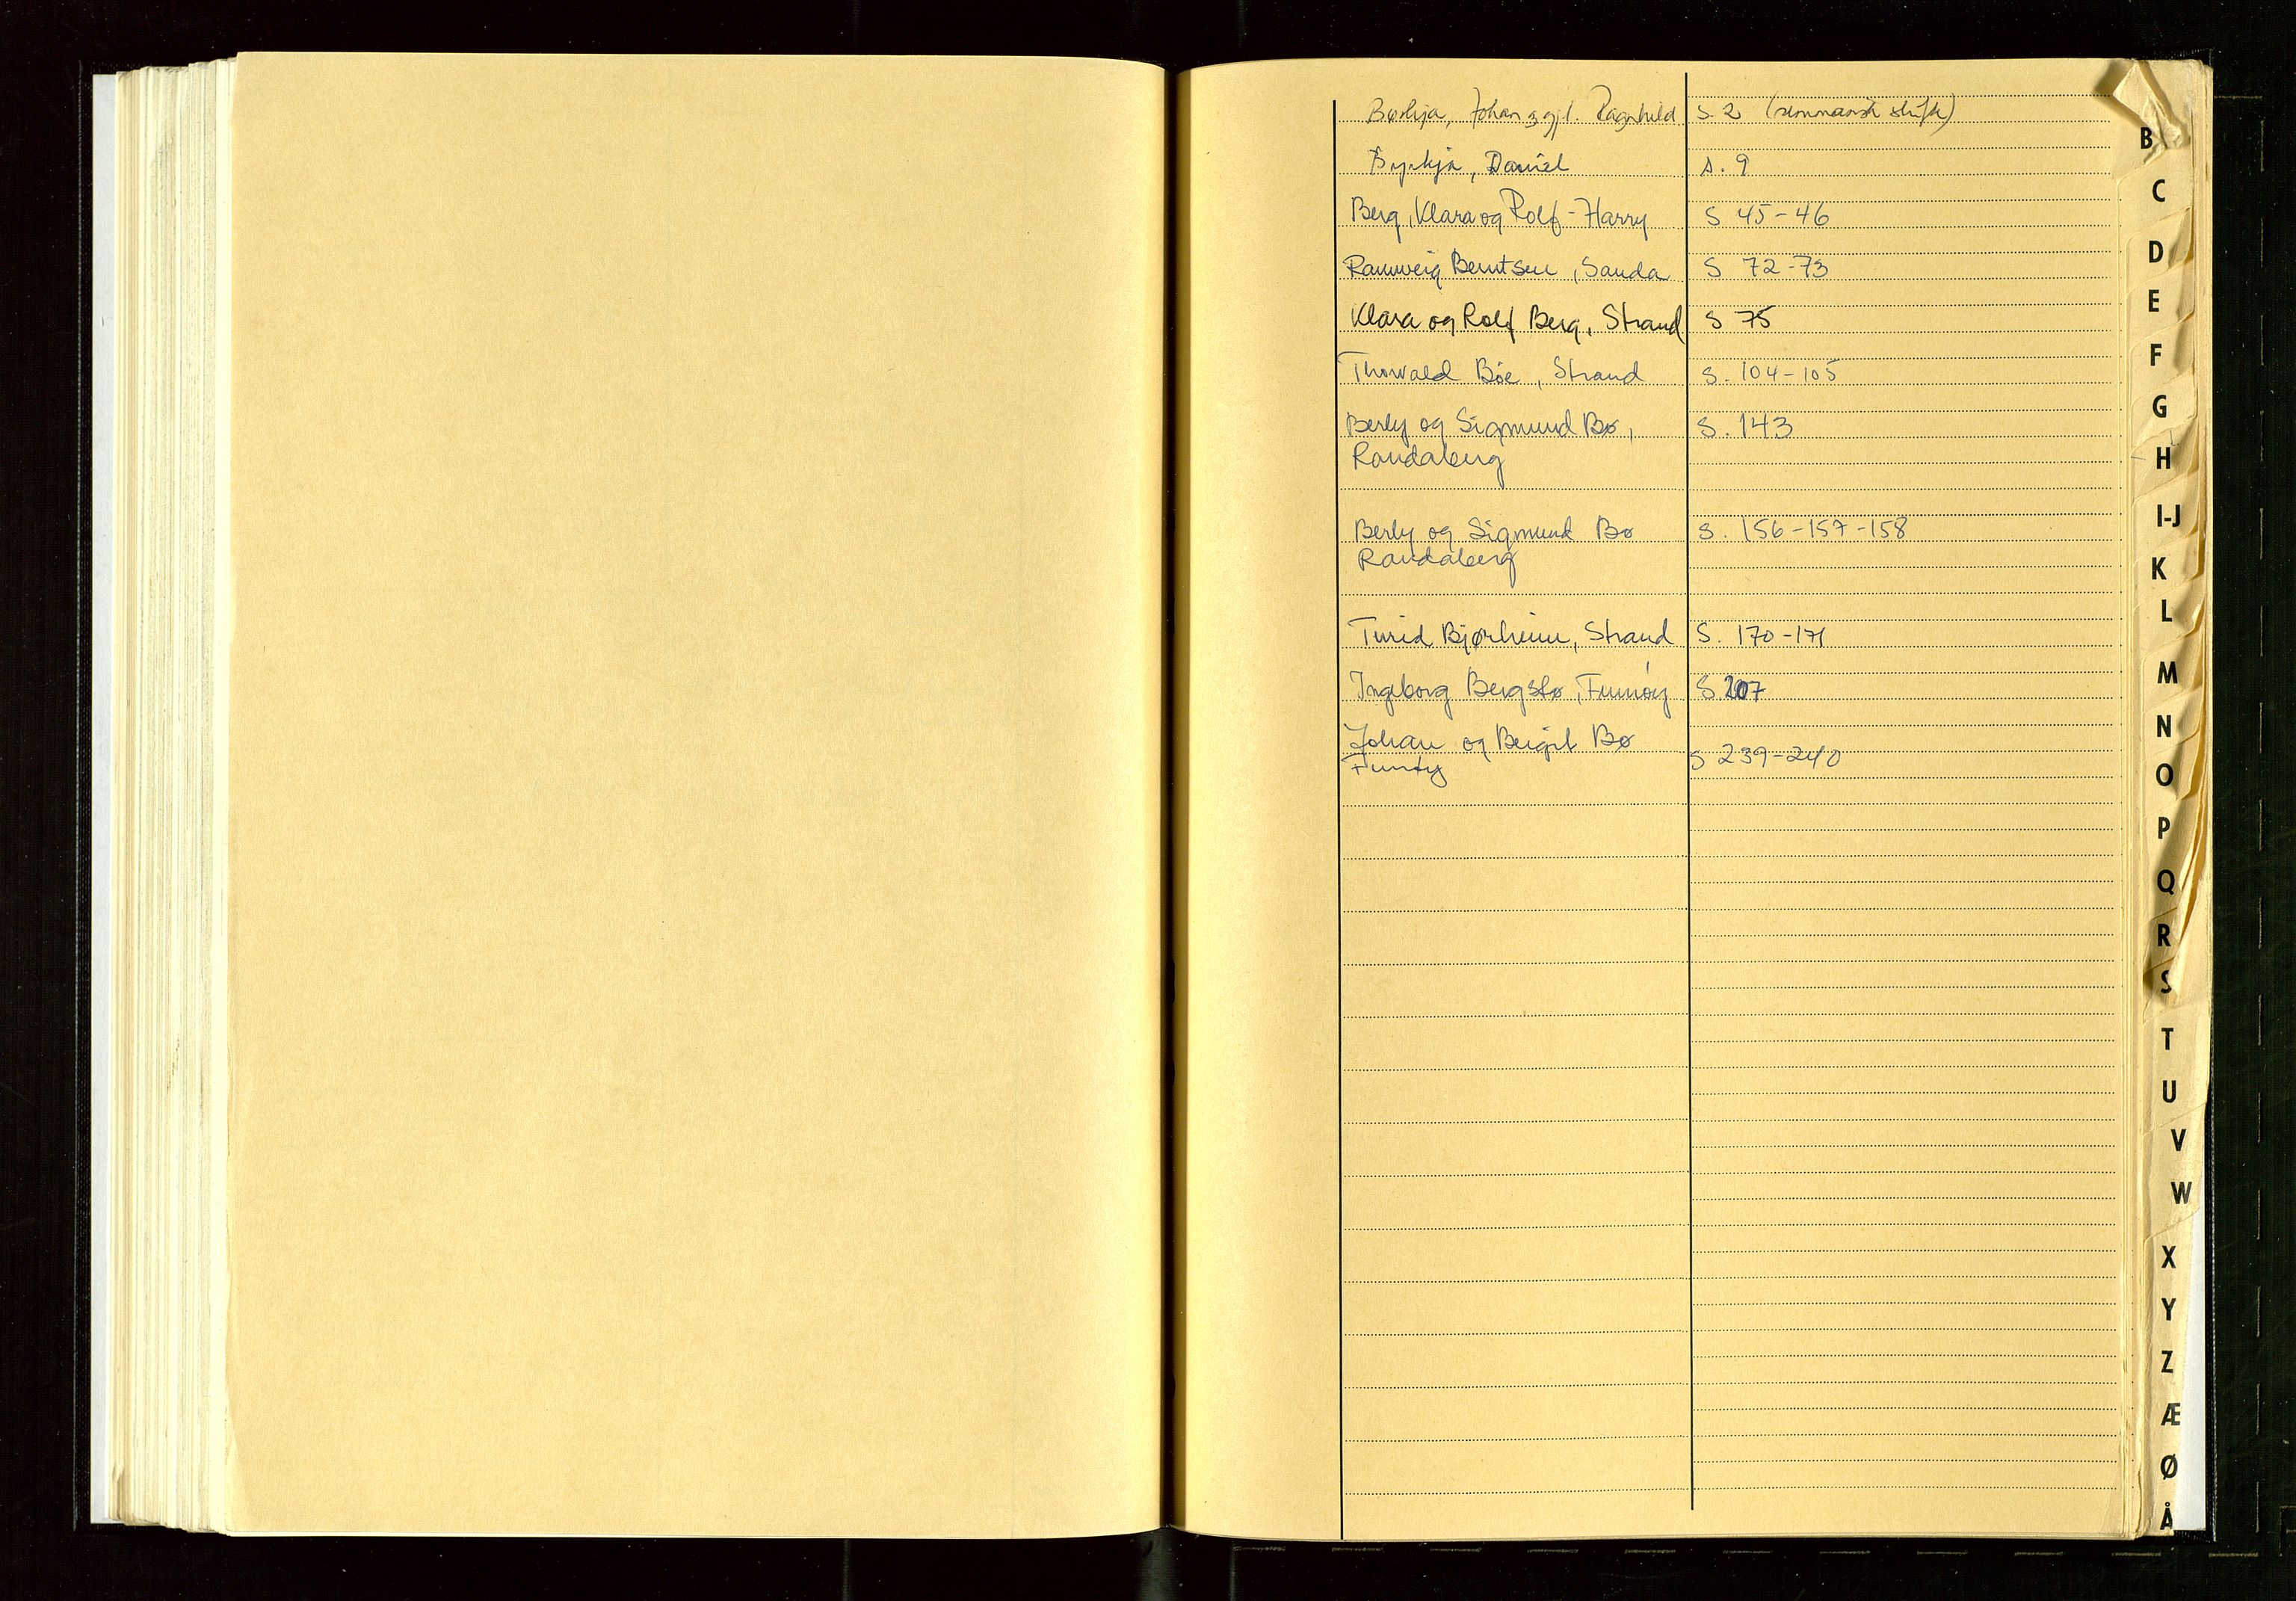 Johan og gjl. Ragnhild S. 2 (summarisk skifte)
Byrkja, Daniel s. 9
Berg, Klara og Rolf-Harry S 45-46
Rannveig Berntsen, Sauda S 72-73
Klara og Rolf Berg, Strand S 75
Thorvald Bøe, Strand s. 104-105
Berly og Sigmund Bø, S. 143
Randaberg
Berly og Sigmund Bø s. 156-157-158
Randaberg
Turid Bjørheim, Strand S. 170-171
Ingeborg Bergstø, Finnøy S. 207
Johan og Bergit Bø
Finnøy S 239-240
B
C
D
E
F
G
H
I-J
K
L
M
N
O
P
Q
R
S
T
U
V
W
X
Y
Z
Æ
Ø
Å